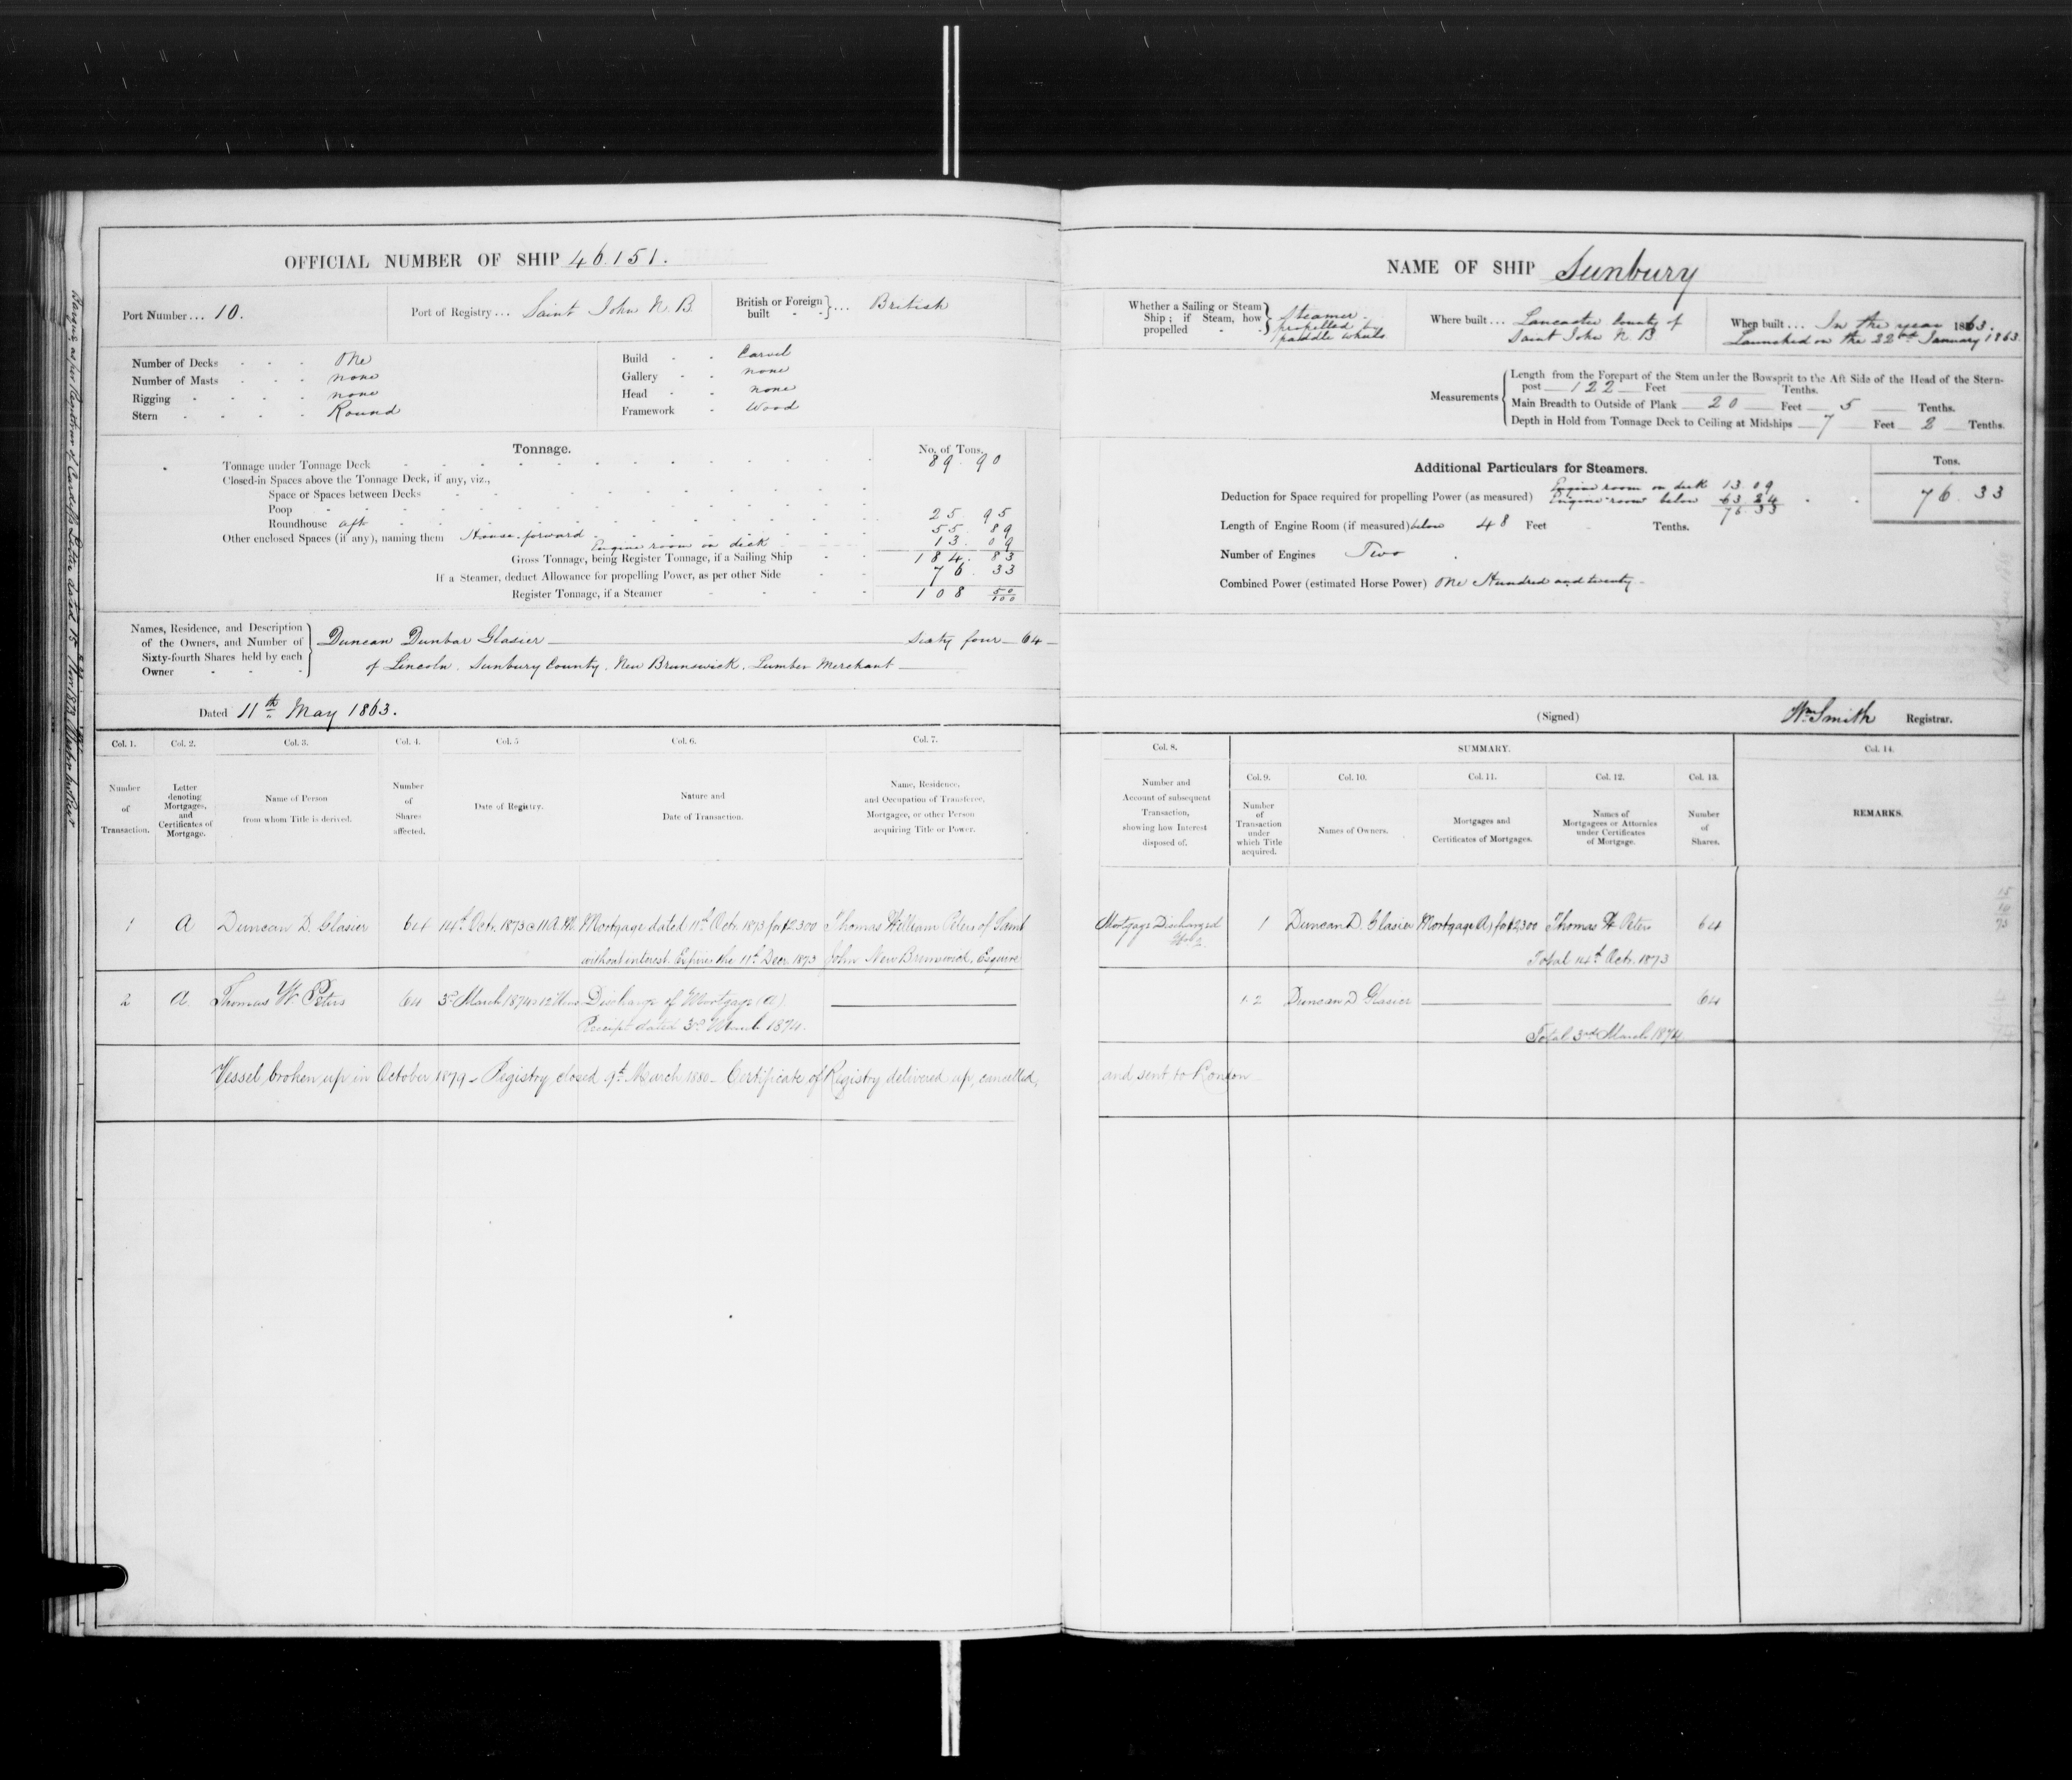 OFFICIAL NUMBER OF SHIP 46.151.
Port Number... 10.
Port of Registry... Saint John N.B.
British or Foreign built } ... British
Number of Decks - - - One
Number of Masts - - - none
Rigging - - - - none
Stern - - - - Round
Build - - Carvel
Gallery - - none
Head - - none
Framework - Wood
Tonnage.
No. of Tons.
Tonnage under Tonnage Deck 89. 90
Closed-in Spaces above the Tonnage Deck, if any, viz.,
Space or Spaces between Decks
Poop
Roundhouse aft 25. 95
Other enclosed Spaces (if any), naming them House forward 55. 89
Engine room on deck 13. 09
Gross Tonnage, being Register Tonnage, if a Sailing Ship 184. 83
If a Steamer, deduct Allowance for propelling Power, as per other Side 76. 33
Register Tonnage, if a Steamer 108 50/100
Names, Residence, and Description
of the Owners, and Number of
Sixty-fourth Shares held by each
Owner
Duncan Dunbar Glasier Sixty four - 64 -
of Lincoln. Sunbury County. New Brunswick. Lumber Merchant
Dated 11th May 1863.
Col. 1. Col. 2. Col. 3. Col. 4. Col. 5 Col. 6. Col. 7.
Number of Transaction.
Letter denoting Mortgages, and Certificates of Mortgage.
Name of Person from whom Title is derived.
Number of Shares affected.
Date of Registry.
Nature and Date of Transaction.
Name, Residence, and Occupation of Transferee, Mortgagee, or other Person acquiring Title or Power.
1 A Duncan D. Glasier 64 14th Oct. 1873 @ 11 A.M. Mortgage dated 11th Oct. 1873 for $2300 Thomas William Peters of Saint
without interest. Expires the 11th Decr. 1873 John New Brunswick, Esquire
2 A. Thomas W Peters 64 3rd March 1874 @ 12 Discharge of Mortgage (A)
Receipt dated 3rd March 1874.
Vessel broken up in October 1879 - Registry closed 9th March 1880 - Certificate of Registry delivered up, cancelled,
NAME OF SHIP Sunbury
Whether a Sailing or Steam Ship; if Steam, how propelled
Steamer.
propelled by
paddle wheels
Where built... Lancaster County of
Saint John N.B
When built... In the year 1863.
Launched on the 22nd January 1863.
Measurements
Length from the Forepart of the Stem under the Bowsprit to the Aft Side of the Head of the Stern-
post 122 Feet Tenths.
Main Breadth to Outside of Plank 20 Feet 5 Tenths.
Depth in Hold from Tonnage Deck to Ceiling at Midships 7 Feet 2 Tenths.
Additional Particulars for Steamers.
Tons.
Engine room on deck 13 09
Deduction for Space required for propelling Power (as measured) Engine room below 63. 24 76. 33
76. 33
Length of Engine Room (if measured) below 48 Feet Tenths.
Number of Engines Two
Combined Power (estimated Horse Power) One Hundred and twenty -
(Signed) Wm Smith Registrar.
Col. 8. SUMMARY. Col. 14.
Col. 9. Col. 10. Col. 11. Col. 12. Col. 13.
Number and Account of subsequent Transaction, showing how Interest disposed of.
Number of Transaction under which Title acquired.
Names of Owners.
Mortgages and Certificates of Mortgages.
Names of Mortgagees or Attornies under Certificates of Mortgage.
Number of Shares.
REMARKS.
Mortgage Discharged 1 Duncan D. Glasier Mortgage A) for $2300 Thomas W Peters 64
Total 14th Oct. 1873
1. 2 Duncan D Glasier 64
Total 3rd March 1874
and sent to London